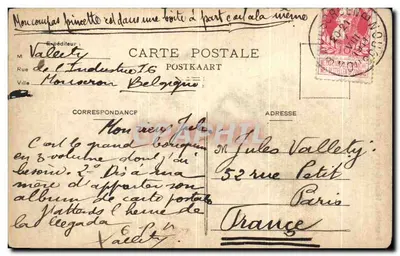 Mon compas pincette est dans une boite à part c'est la même
Expéditeur
CARTE POSTALE
POSTKAART
M Vallety
Rue de l'Industrie 76
Ville Mouscron Belgique
CORRESPONDANCE
ADRESSE
Mon vieux Jules
C'est le grand bouquin
en 3 volume dont j'ai
besoin. 2° Dis à ma
mère d'apporter son
album de carte postale
J'attends l'heure de
la llegada
Vallety
M Jules Vallety
52 rue Petit
Paris
France